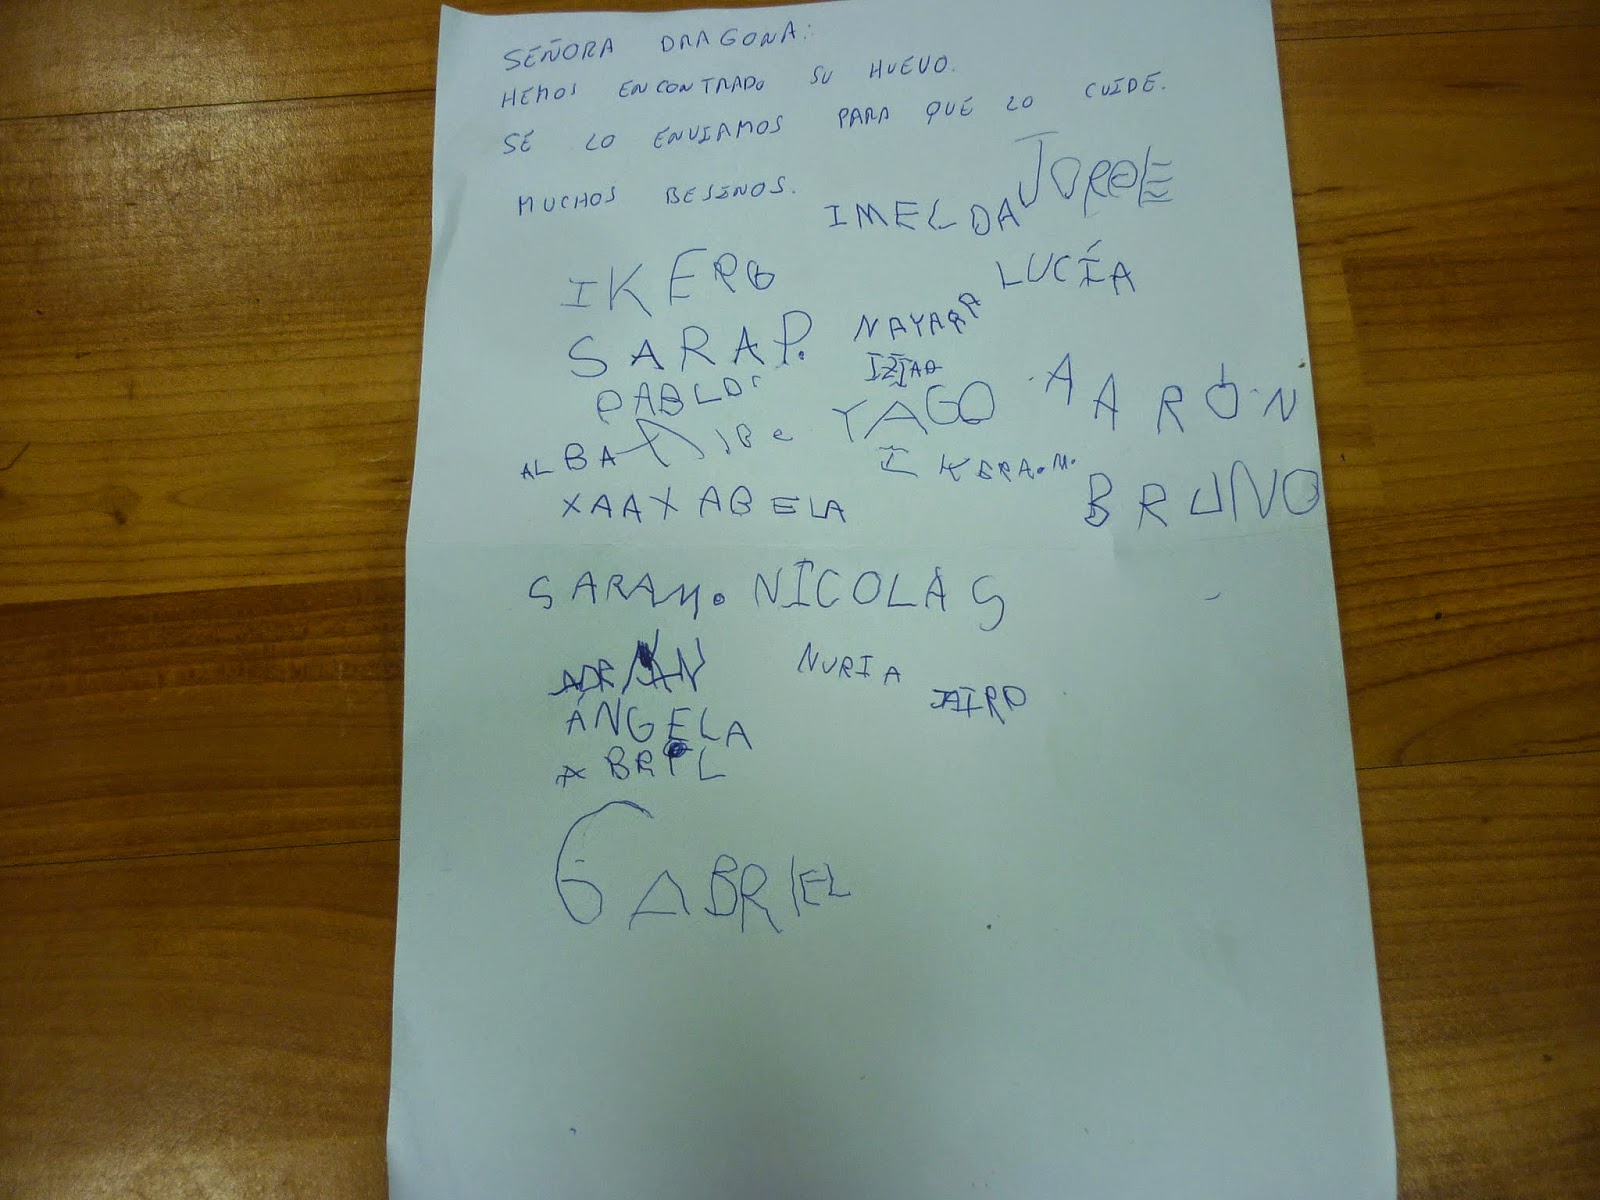 SEÑORA DRAGONA:
HEMOS ENCONTRADO SU HUEVO.
SE LO ENVIAMOS PARA QUE LO CUIDE.
MUCHOS BESINOS.
JORGE
IMELDA
IKER
LUCÍA
SARA P.
NAYARA
PABLO
YAGO
AARÓN
ALBA
IKER A.M.
BRUNO
ABELA
SARA M. NICOLÁS
ADRIÁN
NURIA
JAIRO
ÁNGELA
ABRIL
GABRIEL